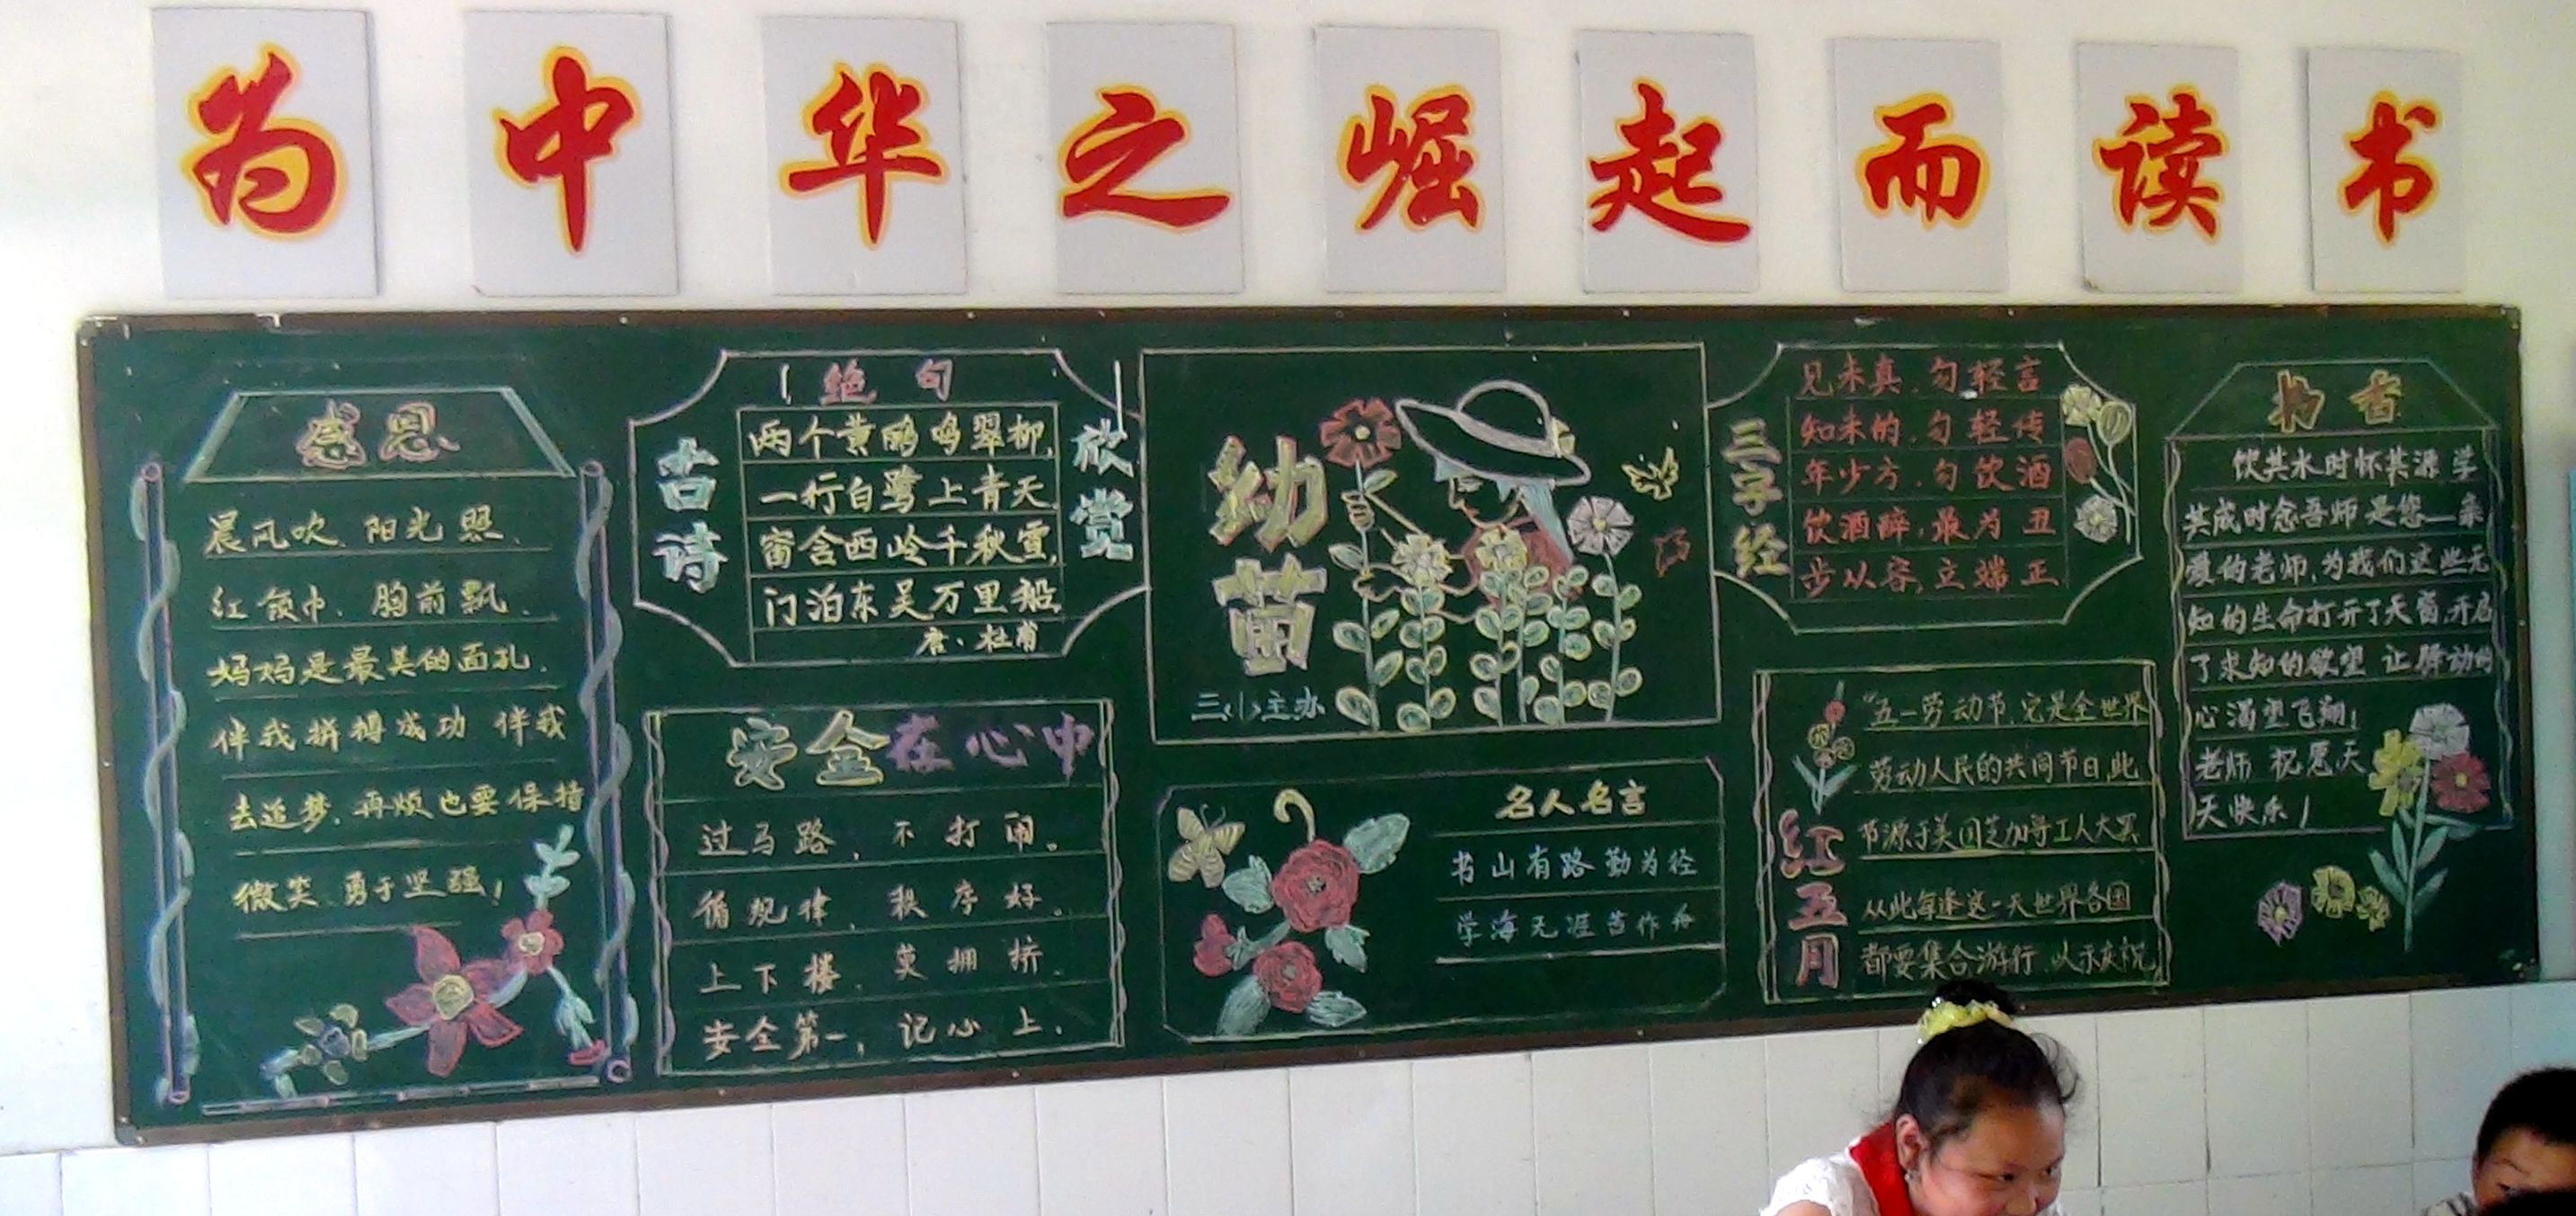 为中华之崛起而读书
感恩
晨风吹、阳光照、
红领巾、胸前飘、
妈妈是最美的面孔、
伴我拼搏成功 伴我
去追梦、再烦也要保持
微笑 勇于坚强！
古诗
欣赏
绝句
两个黄鹂鸣翠柳，
一行白鹭上青天
窗含西岭千秋雪，
门泊东吴万里船
唐·杜甫
安全在心中
过马路、不打闹。
循规律、秩序好。
上下楼、莫拥挤、
安全第一，记心上.
幼苗
三小主办
名人名言
书山有路勤为径
学海无涯苦作舟
三字经
见未真、勿轻言
知未的，勿轻传
年少方、勿饮酒
饮酒醉，最为丑
步从容，立端正
红五月
“五一劳动节，它是全世界
劳动人民的共同节日，此
节源于美国芝加哥工人大罢
从此每逢这一天世界各国
都要集合游行、以示庆祝
香
饮其水时怀其源 学
其成时念吾师 是您—亲
爱的老师，为我们这些无
知的生命打开了天窗，开启
了求知的欲望 让驿动的
心渴望飞翔！
老师 祝愿天
天快乐！